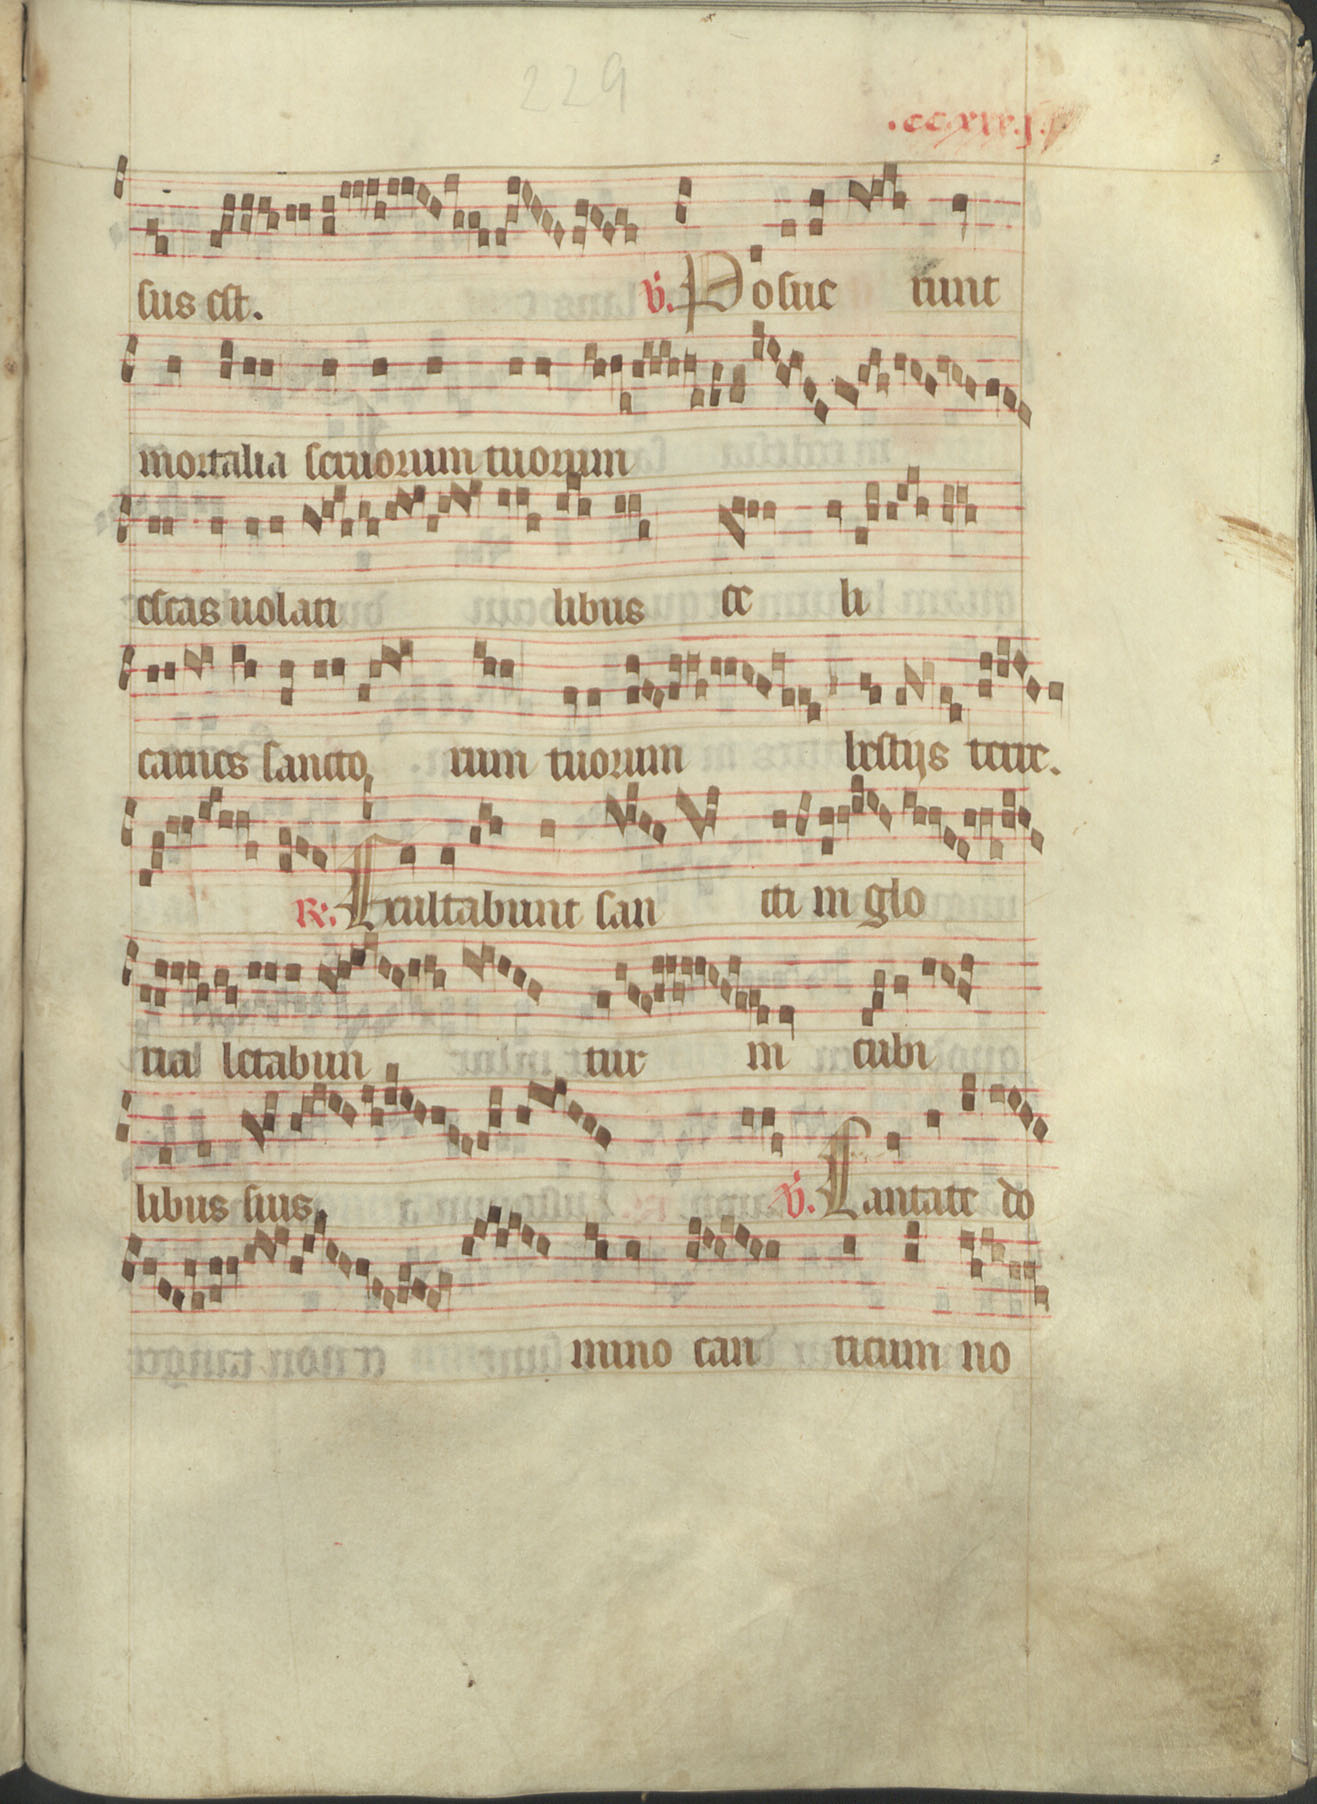 229
.ccxxx.j.
sus est. v. Posue runt
mortalia seruorum tuorum
escas uolati libus ce li
carnes sancto rum tuorum bestijs terre.
R. Exultabunt san cti in glo
ria letabun tur in cubi
libus suis. v. Cantate do
mino can ticum no